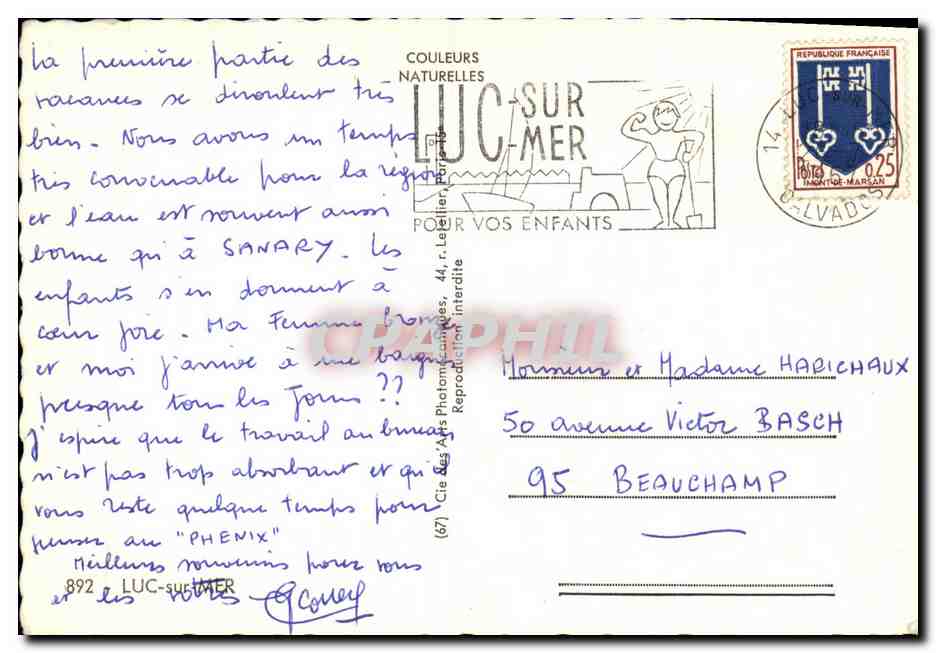 La première partie des
vacances se déroulent très
bien. Nous avons un temps
très convenable pour la région
et l'eau est souvent aussi
bonne qu'à SANARY. Les
enfants s'en donnent à
cœur joie. Ma Femme bronze
et moi j'arrive à me baigner
presque tous les Jours ??
J'espère que le travail au bureau
n'est pas trop absorbant et qu'il
vous reste quelque temps pour
penser au "PHENIX"
Meilleurs souvenirs pour vous
et les vôtres
892 LUC-sur-MER
COULEURS
NATURELLES
LUC-SUR
-MER
POUR VOS ENFANTS
REPUBLIQUE FRANÇAISE
Postes 0,25
MONT-DE-MARSAN
14-LUC SUR
CALVADOS
(67) Cie des Arts Photomécaniques, 44, r. Letellier, Paris-15
Reproduction interdite
CPAPHIL
Monsieur et Madame HARICHAUX
50 avenue Victor BASCH
95 BEAUCHAMP